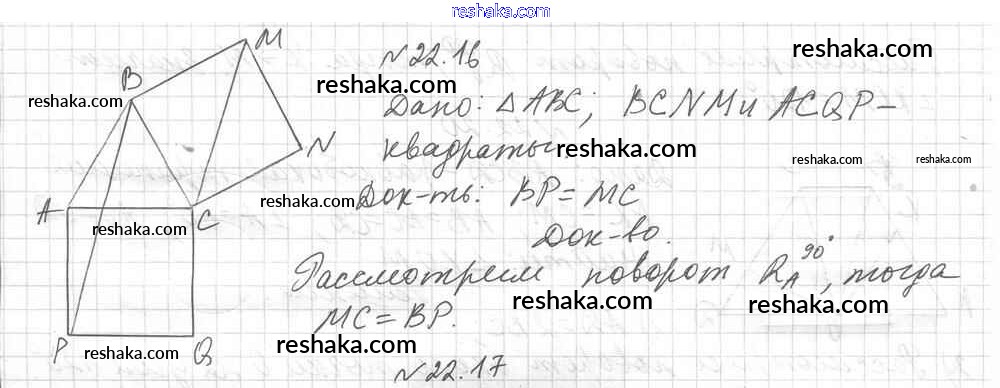 reshaka.com
N22.16
reshaka.com
reshaka.com
Дано: △ABC; BCNM и ACQP –
reshaka.com
квадраты.
reshaka.com
reshaka.com
reshaka.com
Док-ть: BP = MC
reshaka.com
Док-во.
reshaka.com
Рассмотрим поворот R_A^90°, тогда
reshaka.com
reshaka.com
MC = BP.
reshaka.com
reshaka.com
N22.17
M
B
N
A
C
P
Q